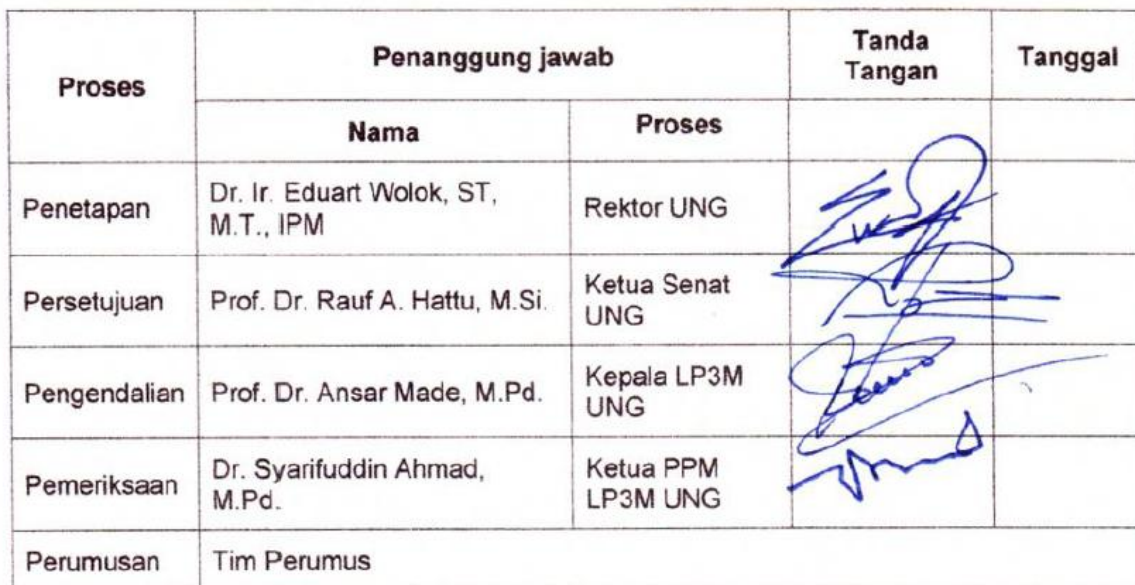 Proses
Penanggung jawab
Tanda
Tangan
Tanggal
Nama
Proses
Penetapan
Dr. Ir. Eduart Wolok, ST,
M.T., IPM
Rektor UNG
Persetujuan
Prof. Dr. Rauf A. Hattu, M.Si.
Ketua Senat
UNG
Pengendalian
Prof. Dr. Ansar Made, M.Pd.
Kepala LP3M
UNG
Pemeriksaan
Dr. Syarifuddin Ahmad,
M.Pd.
Ketua PPM
LP3M UNG
Perumusan
Tim Perumus